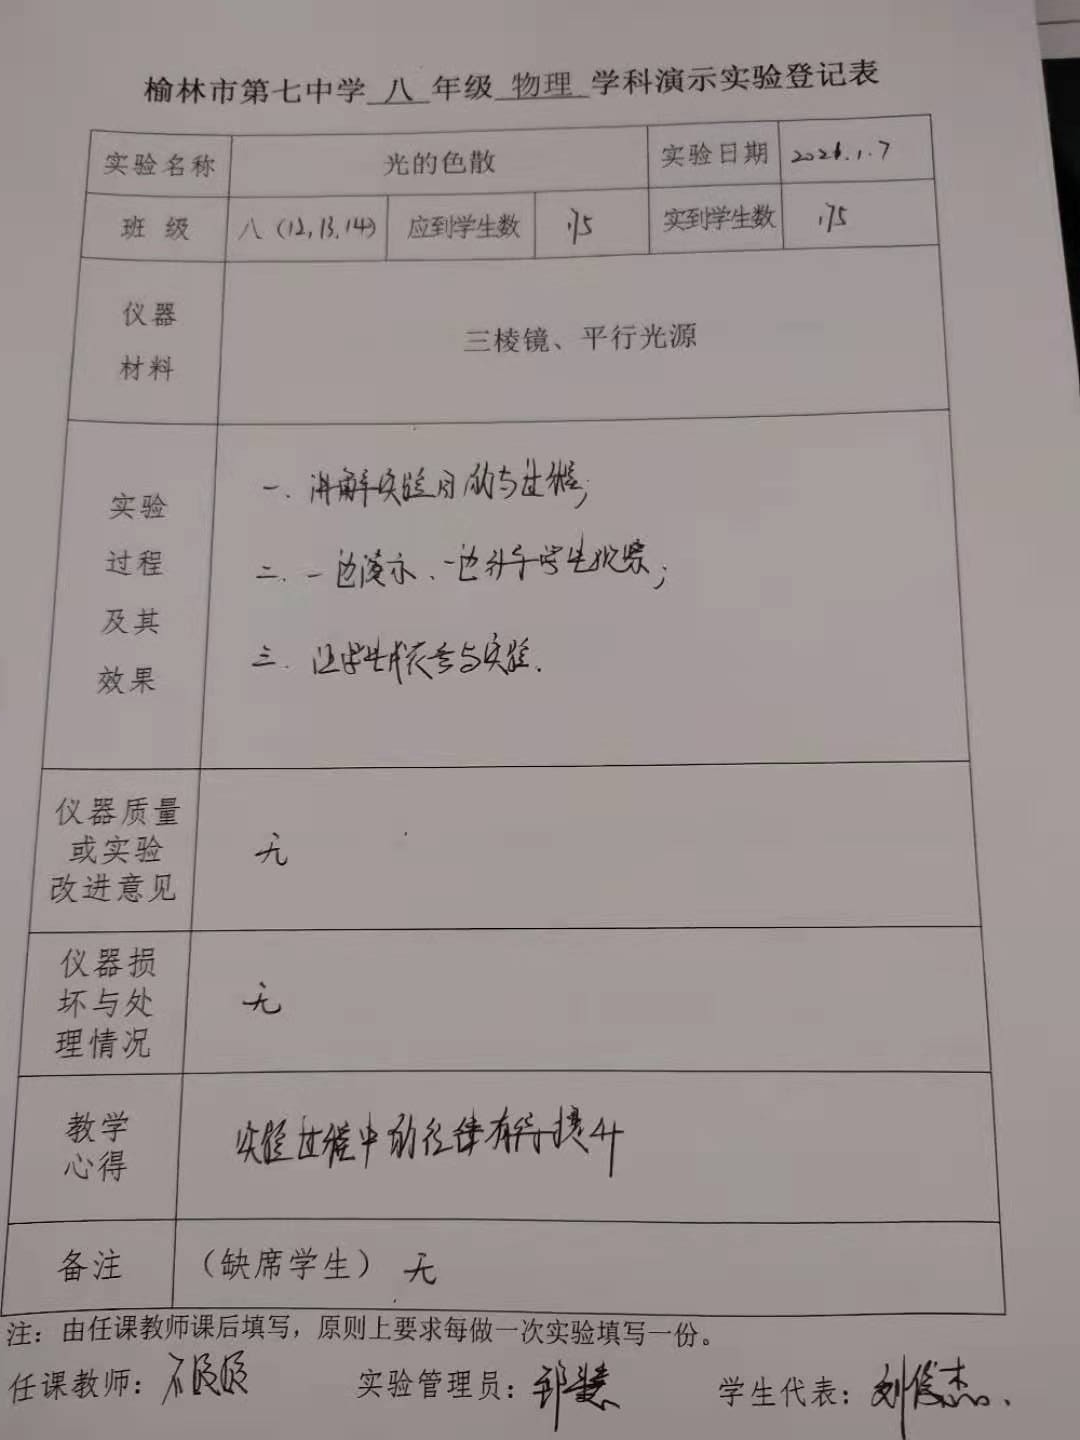 榆林市第七中学 八 年级 物理 学科演示实验登记表
实验名称 光的色散 实验日期 2026.1.7
班 级 八(12,13,14) 应到学生数 175 实到学生数 175
仪器
材料
三棱镜、平行光源
实验
过程
及其
效果
一. 讲解实验目的与过程;
二. 一边演示、一边引导学生观察;
三. 让学生代表参与实验.
仪器质量
或实验
改进意见
无
仪器损
坏与处
理情况
无
教学
心得
实验过程中的纪律有待提升
备注 (缺席学生) 无
注：由任课教师课后填写，原则上要求每做一次实验填写一份。
任课教师: 实验管理员: 学生代表: 刘俊杰